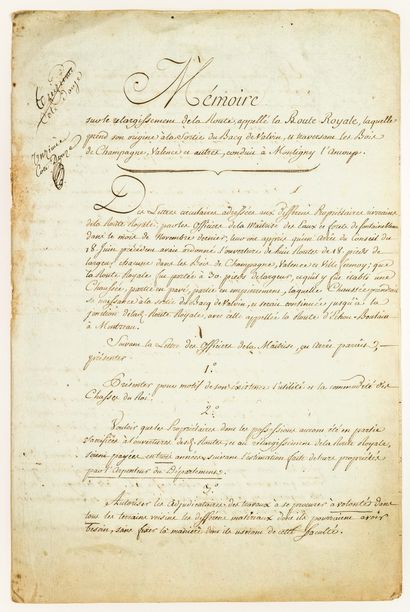 Mémoire
sur le relargissement de la Route, appellé la Route Royale, laquelle
prend son origine à la Sortie du Bacq de Valvin, et traversant les Bois
de Champagne, Valence et autres, conduit à Montigny
Des Lettres circulaires adressées aux differens Propriétaires
de la Route Royale; par les Officiers de la Maitrise des Eaux et forêts de fontainebleau
dans le mois de Novembre dernier, leur ont appris qu'un Arrêt du Conseil du
18 Juin précédent avait ordonné l'ouverture de huit Routes de 18 pieds de
largeur, chacune dans les Bois de Champagne, Valence et; que
la Route Royale fut portée à 30. pieds de largeur, et qu'il y fut établi une
Chaussée, partie en pavé, partie en empierrement, laquelle Chaussée prendroit
sa naissance à la sortie du Bacq de Valvin, et seroit continuée jusqu'à la
jonction de la de. Route Royale, avec celle appellée la Route
à Montreau.
Suivant la Lettre des Officiers de la Maitrise, cet Arrêt paroit
présenter
1.°
Présenter pour motif de son existence l'utilité et la commodité des
Chasses du Roi:
2.°
Vouloir que les Propriétaires dont les possessions auront été en partie
à l'ouverture des Routes, et au relargissement de la Route Royale,
soient payés en trois années, suivant l'estimation faite de leurs propriétés
par l'Arpenteur du Département.
3.°
Autoriser les Adjudicataires des travaux à se procurer à volonté dans
tous les terrains voisins les differens matériaux dont ils pourraient avoir
besoin, sans fixer la manière dont ils useront de cette faculté.